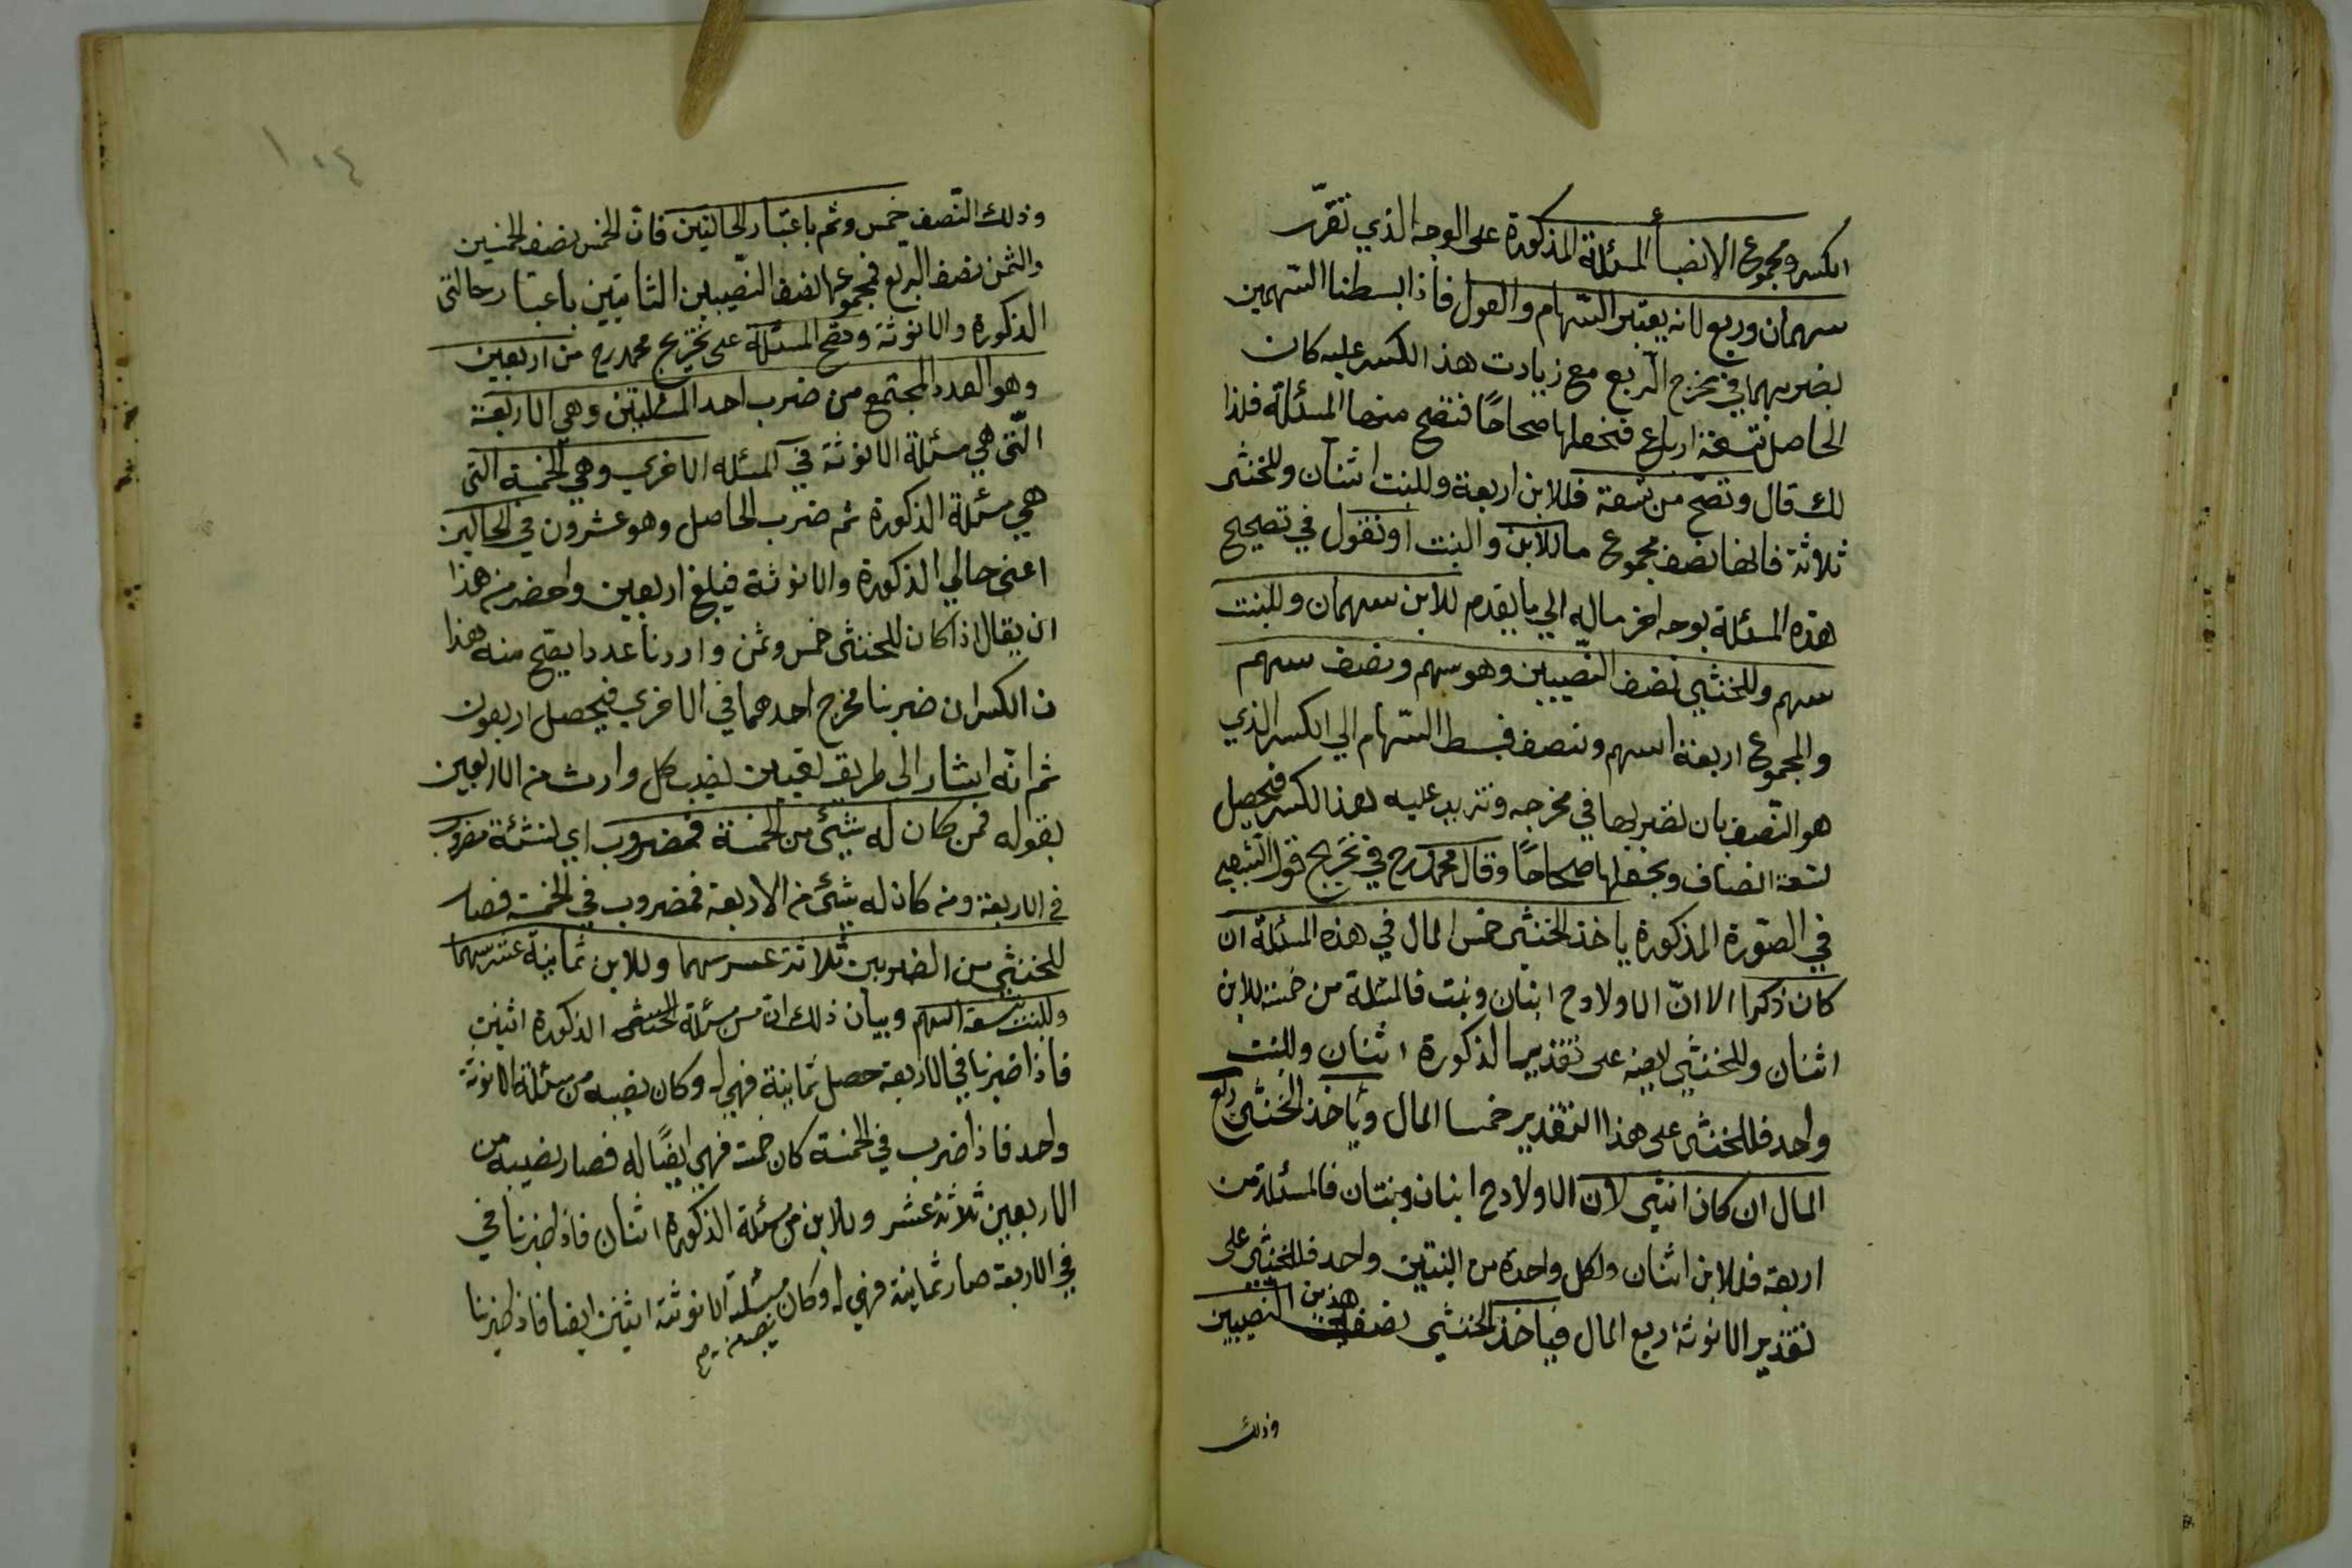 الكسر ومجموع الانصبأ المسئلة المذكورة على الوجه الذي تقرّر
سهمان وربع لانه يعتبر السّهام والعول فاذا بسطنا السّهمين
بضربهما في مخرج الربع مع زيادت هذا الكسر عليه كان
الحاصل تسعة ارباع فنجعلها صحاحًا فتصح منها المسئلة فلذا
لك قال وتصحّ من تسعة فللابن اربعة وللبنت اثنان وللخنثى
ثلاثة فانها نصف مجموع ما للابن والبنت او نقول في تصحيح
هذه المسئلة بوجه اخر ماله الي ما يقدم للابن سهمان وللبنت
سهم وللخنثي نصف النّصيبين وهو سهم ونصف سهم
والمجموع اربعة اسهم ونصف فبسط السّهام الي الكسر الذي
هو النّصف بان نضربها في مخرجه ونزيد عليه هذا الكسر فتحصل
تسعة انصاف ونجعلها صحاحًا وقال محمد رح في تخريج قول الشعبي
في الصّورة المذكورة ياخذ الخنثى خمس المال في هذه المسئلة ان
كان ذكرا الا انّ الاولاد ح ابنان وبنت فالمسئلة من خمسة للابن
اثنان وللخنثي ايضا على تقدير الذكورة اثنان وللبنت
واحد فللخنثى على هذا التقدير خمسا المال وياخذ الخنثى ربع
المال ان كان انثي لان الاولاد ح ابنان وبنتان فالمسئلة من
اربعة فللابن اثنان ولكل واحدة من البنتين واحد فللخنثي على
تقدير الانوثة ربع المال فياخذ الخنثي نصف هذين النصيبين
وذلك
١٠٤
وذلك النّصف خمس وثمن باعتبار الحالتين فانّ الخمس نصف الخمسين
والثمن نصف الربع فمجموعهما نصف النّصيبين الثابتين باعتبار حالتي
الذكورة والانوثة وتصح المسئلة على تخريج محمد رح من اربعين
وهو العدد المجتمع من ضرب احد المسئلتين وهي الاربعة
الّتي هي مسئلة الانوثة في المسئله الاخري وهي الخمسة التي
هي مسئلة الذكورة ثم ضرب الحاصل وهو عشرون في الحالين
اعني حالي الذكورة والانوثة فيبلغ اربعين واخصر من هذا
ان يقال اذا كان للخنثى خمس وثمن واردنا عددا يصح منه هذا
ن الكسران ضربنا مخرج احدهما في الاخري فيحصل اربعون
ثم انّه اشار الى طريق تعيين نصيب كل وارث من الاربعين
بقوله فمن كان له شيئ من الخمسة فمضروب اي لشئه مضروب
في الاربعة ومن كان له شيئ من الاربعة فمضروب في الخمسة فصار
للخنثي من الضربين ثلاثة عشر سهما وللابن ثمانية عشر سهما
وللبنت تسعة اسهم وبيان ذلك ان من مسئلة الخنثى الذكورة اثنين
فاذا ضربنا في الاربعة حصل ثمانية فهي له وكان نصيبه من مسئلة الانوثة
واحد فاذا ضرب في الخمسة كان خمسة فهي ايضًا له فصار نصيبه من
الاربعين ثلاثة عشر وللابن من مسئلة الذكورة اثنان فاذا ضربنا في
في الاربعة صار ثمانية فهي له وكان مسئلة الانوثة اثنين ايضا فاذا ضربنا
نصيبه من